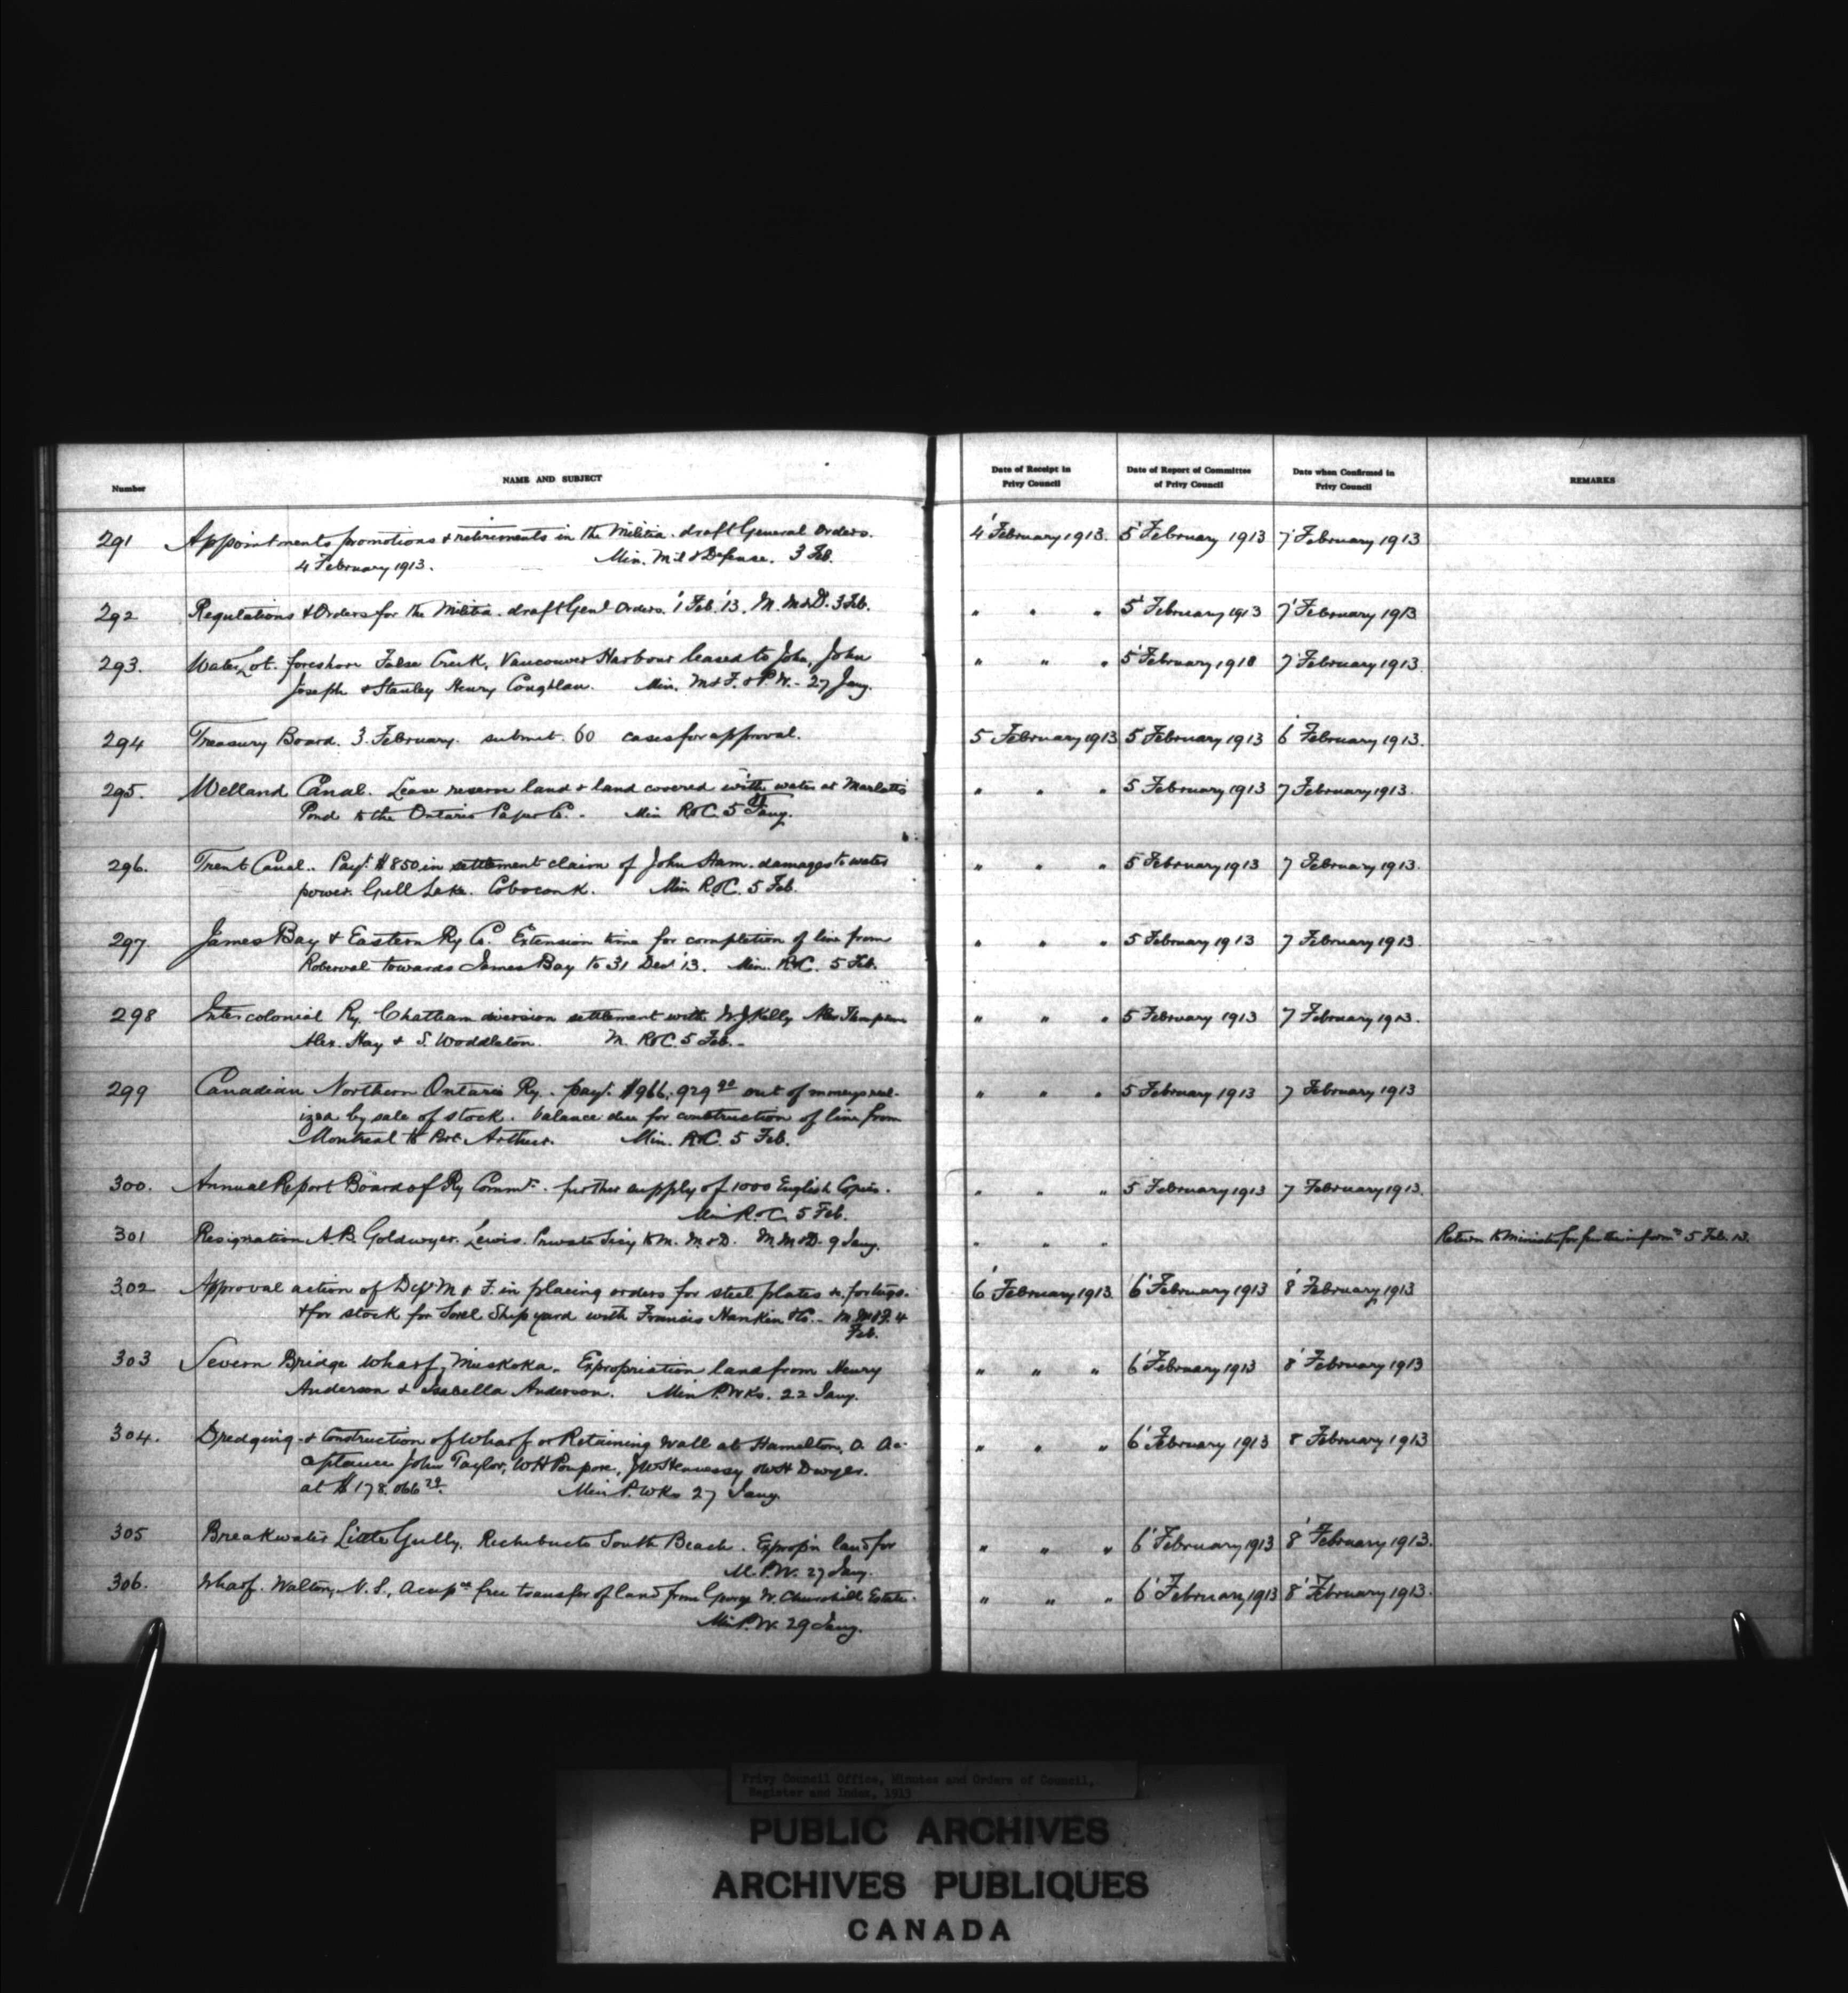 Number
NAME AND SUBJECT
Date of Receipt in
Privy Council
Date of Report of Committee
of Privy Council
Date when Confirmed in
Privy Council
REMARKS
291 Appointments promotions & retirements in the Militia. draft General Orders. 4' February 1913. 5' February 1913 7' February 1913
4 February 1913. Min. Mil & Defense. 3 Feb.
292 Regulations & Orders for the Militia. draft Genl Orders. 1' Feb. '13. M. M&D. 3 Feb. " " " 5' February 1913 7' February 1913
293. Water Lot. foreshore False Creek, Vancouver Harbour leased to John, John " " " 5' February 1918 7' February 1913.
Joseph & Stanley Henry Coughlan. Min. M&F. & P.W. - 27 Jany.
294 Treasury Board. 3 February. submit. 60 cases for approval. 5 February 1913 5 February 1913 6' February 1913.
295. Welland Canal. Lease reserve land & land covered with water at Marlatts " " " 5 February 1913 7 February 1913.
Pond to the Ontario Paper Co. - Min R&C. 5 Jany.
296. Trent Canal.. Payt. $850 in settlement claim of John Ham. damages to water " " " 5 February 1913 7 February 1913.
power. Gull Lake. Coboconk. Min R&C. 5 Feb.
297 James Bay & Eastern Ry Co. Extension time for completion of line from " " " 5 February 1913 7 February 1913.
Roberval towards James Bay to 31 Decr '13. Min. R&C. 5 Feb.
298 Intercolonial Ry. Chatham diversion settlement with W. J Kelly " " " 5 February 1913 7 February 1913.
Alex. Hay & S. Woddleton. M. R&C. 5 Feb. -
299 Canadian Northern Ontario Ry. - payt. $966,929.90 out of moneys real- " " " 5 February 1913 7 February 1913
ized by sale of stock. balance due for construction of line from
Montreal to Port Arthur. Min. R&C. 5 Feb.
300. Annual Report Board of Ry Commrs. further supply of 1000 English Copies. " " " 5 February 1913 7 February 1913.
Min R&C. 5 Feb.
301 Resignation A.B. Goldwyer Lewis. Private Secy to M. M&D. M. M&D. 9 Jany. " " " Return to Minister for further informn 5 Feb. 13.
302 Approval action of Dept M & F. in placing orders for steel plates &c. for tugs. 6' February 1913. 6' February 1913 8' February 1913
& for stock for Sorel Shipyard with Francis Hankin & Co. - M. M&F. 4
Feb.
303 Severn Bridge Wharf, Muskoka. Expropriation land from Henry " " " 6' February 1913 8' February 1913
Anderson & Isabella Anderson. Min P. Wks. 22 Jany.
304. Dredging & Construction of Wharf or Retaining Wall at Hamilton, O. Ac- " " " 6' February 1913 8 February 1913
ceptance John Taylor, W H Poupore, J W Hennessy & W H Dwyer.
at $178.066.29. Min P. Wks 27 Jany.
305 Breakwater Little Gully, Richibucto South Beach. Expropn land for " " " 6' February 1913 8' February 1913.
M. P.W. 27 Jany.
306. Wharf. Walton, N.S., Accepce free transfer of land from George W. Churchill Estate. " " " 6' February 1913 8' February 1913.
Min P.W. 29 Jany.
Privy Council Office, Minutes and Orders of Council,
Register and Index, 1913
PUBLIC ARCHIVES
ARCHIVES PUBLIQUES
CANADA